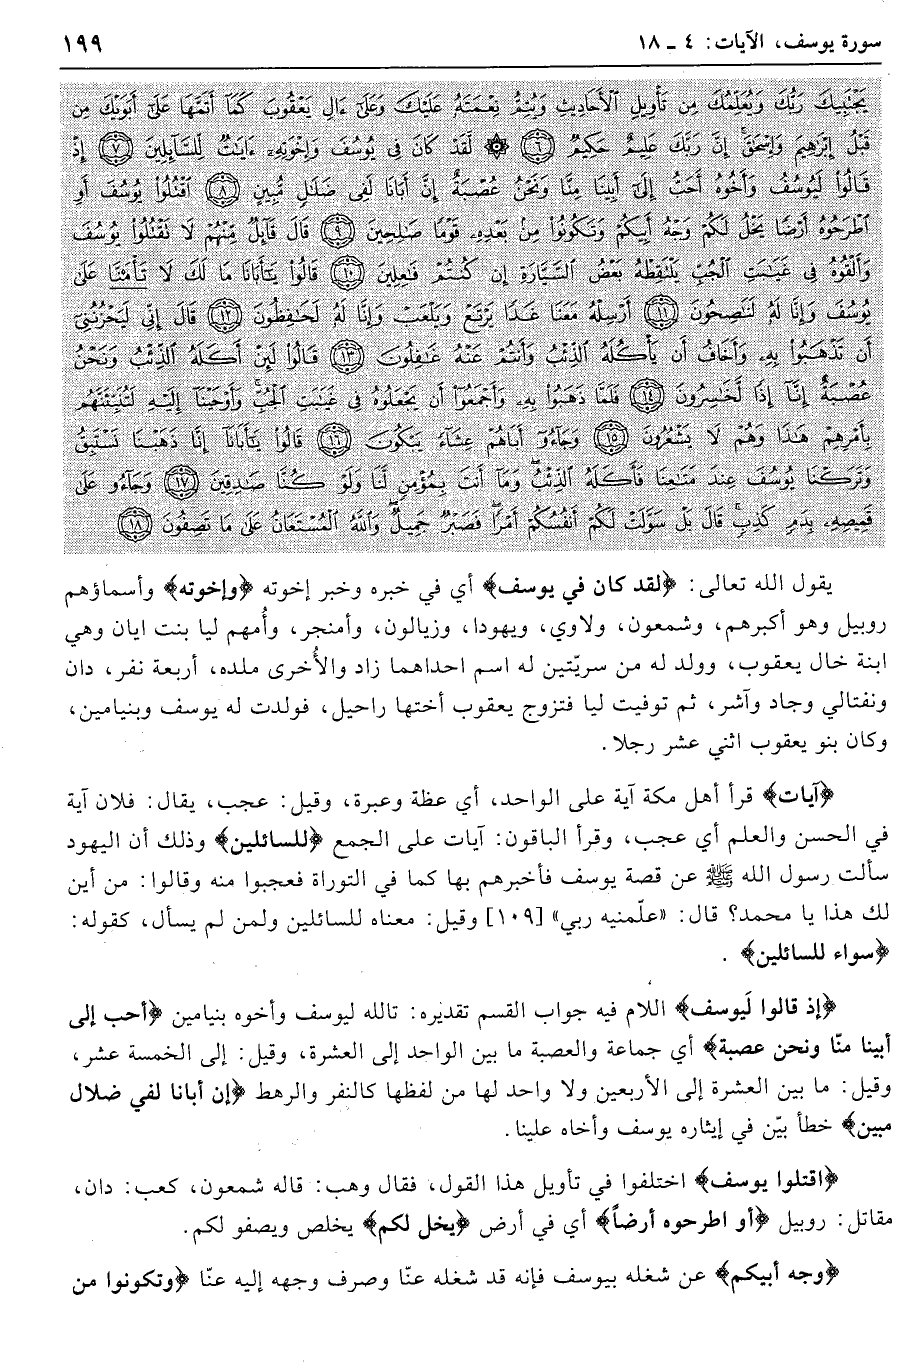 سورة يوسف، الآيات: ٤ ـ ١٨ ١٩٩
يَجْتَبِيكَ رَبُّكَ وَيُعَلِّمُكَ مِن تَأْوِيلِ الْأَحَادِيثِ وَيُتِمُّ نِعْمَتَهُ عَلَيْكَ وَعَلَىٰ ءَالِ يَعْقُوبَ كَمَا أَتَمَّهَا عَلَىٰ أَبَوَيْكَ مِن
قَبْلُ إِبْرَٰهِيمَ وَإِسْحَٰقَ إِنَّ رَبَّكَ عَلِيمٌ حَكِيمٌ ﴿٦﴾ ۞ لَّقَدْ كَانَ فِي يُوسُفَ وَإِخْوَتِهِۦ ءَايَٰتٌ لِّلسَّآئِلِينَ ﴿٧﴾ إِذْ
قَالُوا۟ لَيُوسُفُ وَأَخُوهُ أَحَبُّ إِلَىٰٓ أَبِينَا مِنَّا وَنَحْنُ عُصْبَةٌ إِنَّ أَبَانَا لَفِي ضَلَٰلٍ مُّبِينٍ ﴿٨﴾ ٱقْتُلُوا۟ يُوسُفَ أَوِ
ٱطْرَحُوهُ أَرْضًا يَخْلُ لَكُمْ وَجْهُ أَبِيكُمْ وَتَكُونُوا۟ مِنۢ بَعْدِهِۦ قَوْمًا صَٰلِحِينَ ﴿٩﴾ قَالَ قَآئِلٌ مِّنْهُمْ لَا تَقْتُلُوا۟ يُوسُفَ
وَأَلْقُوهُ فِي غَيَٰبَتِ ٱلْجُبِّ يَلْتَقِطْهُ بَعْضُ ٱلسَّيَّارَةِ إِن كُنتُمْ فَٰعِلِينَ ﴿١٠﴾ قَالُوا۟ يَٰٓأَبَانَا مَا لَكَ لَا تَأْمَ۫نَّا عَلَىٰ
يُوسُفَ وَإِنَّا لَهُۥ لَنَٰصِحُونَ ﴿١١﴾ أَرْسِلْهُ مَعَنَا غَدًا يَرْتَعْ وَيَلْعَبْ وَإِنَّا لَهُۥ لَحَٰفِظُونَ ﴿١٢﴾ قَالَ إِنِّي لَيَحْزُنُنِيٓ
أَن تَذْهَبُوا۟ بِهِۦ وَأَخَافُ أَن يَأْكُلَهُ ٱلذِّئْبُ وَأَنتُمْ عَنْهُ غَٰفِلُونَ ﴿١٣﴾ قَالُوا۟ لَئِنْ أَكَلَهُ ٱلذِّئْبُ وَنَحْنُ
عُصْبَةٌ إِنَّآ إِذًا لَّخَٰسِرُونَ ﴿١٤﴾ فَلَمَّا ذَهَبُوا۟ بِهِۦ وَأَجْمَعُوٓا۟ أَن يَجْعَلُوهُ فِي غَيَٰبَتِ ٱلْجُبِّ وَأَوْحَيْنَآ إِلَيْهِ لَتُنَبِّئَنَّهُم
بِأَمْرِهِمْ هَٰذَا وَهُمْ لَا يَشْعُرُونَ ﴿١٥﴾ وَجَآءُوٓ أَبَاهُمْ عِشَآءً يَبْكُونَ ﴿١٦﴾ قَالُوا۟ يَٰٓأَبَانَآ إِنَّا ذَهَبْنَا نَسْتَبِقُ
وَتَرَكْنَا يُوسُفَ عِندَ مَتَٰعِنَا فَأَكَلَهُ ٱلذِّئْبُ وَمَآ أَنتَ بِمُؤْمِنٍ لَّنَا وَلَوْ كُنَّا صَٰدِقِينَ ﴿١٧﴾ وَجَآءُو عَلَىٰ
قَمِيصِهِۦ بِدَمٍ كَذِبٍ قَالَ بَلْ سَوَّلَتْ لَكُمْ أَنفُسُكُمْ أَمْرًا فَصَبْرٌ جَمِيلٌ وَٱللَّهُ ٱلْمُسْتَعَانُ عَلَىٰ مَا تَصِفُونَ ﴿١٨﴾
يقول الله تعالى: ﴿لقد كان في يوسف﴾ أي في خبره وخبر إخوته ﴿وإخوته﴾ وأسماؤهم
روبيل وهو أكبرهم، وشمعون، ولاوي، ويهودا، وزيالون، وأمنجر، وأُمهم ليا بنت ايان وهي
ابنة خال يعقوب، وولد له من سريّتين له اسم احداهما زاد والأُخرى ملده، أربعة نفر، دان
ونفتالي وجاد وآشر، ثم توفيت ليا فتزوج يعقوب أختها راحيل، فولدت له يوسف وبنيامين،
وكان بنو يعقوب اثني عشر رجلا.
﴿آيات﴾ قرأ أهل مكة آية على الواحد، أي عظة وعبرة، وقيل: عجب، يقال: فلان آية
في الحسن والعلم أي عجب، وقرأ الباقون: آيات على الجمع ﴿للسائلين﴾ وذلك أن اليهود
سألت رسول الله ﷺ عن قصة يوسف فأخبرهم بها كما في التوراة فعجبوا منه وقالوا: من أين
لك هذا يا محمد؟ قال: «علّمنيه ربي» [١٠٩] وقيل: معناه للسائلين ولمن لم يسأل، كقوله:
﴿سواء للسائلين﴾ .
﴿إذ قالوا لَيوسف﴾ اللام فيه جواب القسم تقديره: تالله ليوسف وأخوه بنيامين ﴿أحب إلى
أبينا منّا ونحن عصبة﴾ أي جماعة والعصبة ما بين الواحد إلى العشرة، وقيل: إلى الخمسة عشر،
وقيل: ما بين العشرة إلى الأربعين ولا واحد لها من لفظها كالنفر والرهط ﴿إن أبانا لفي ضلال
مبين﴾ خطأ بيّن في إيثاره يوسف وأخاه علينا.
﴿اقتلوا يوسف﴾ اختلفوا في تأويل هذا القول، فقال وهب: قاله شمعون، كعب: دان،
مقاتل: روبيل ﴿أو اطرحوه أرضاً﴾ أي في أرض ﴿يخل لكم﴾ يخلص ويصفو لكم.
﴿وجه أبيكم﴾ عن شغله بيوسف فإنه قد شغله عنّا وصرف وجهه إليه عنّا ﴿وتكونوا من